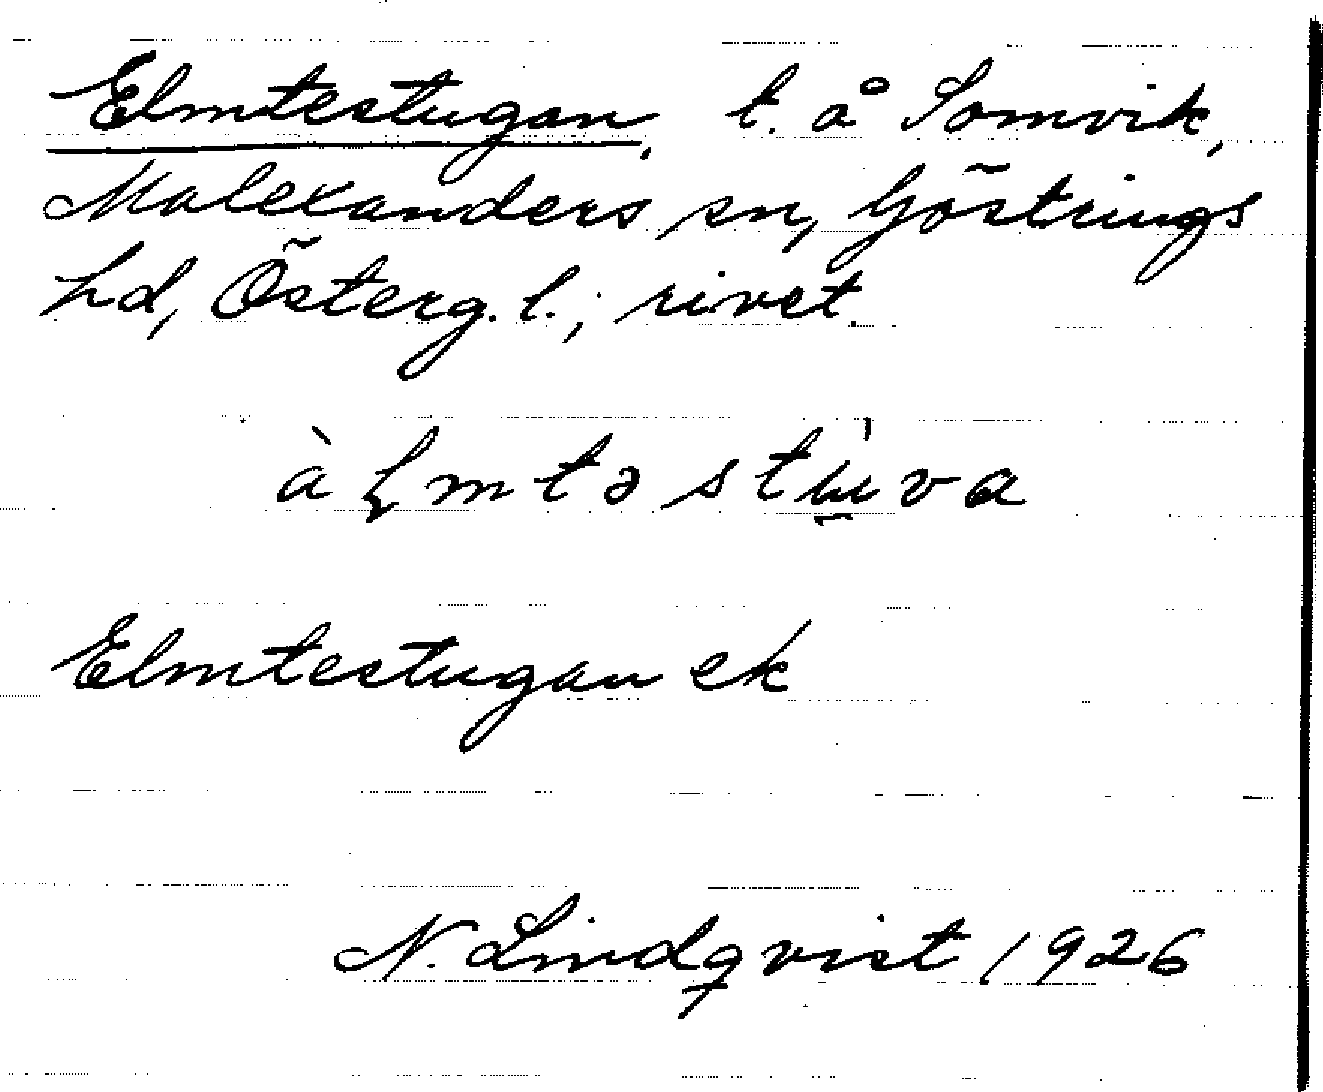 Elmtestugan, t. å Somvik,
Malexanders sn, Göstrings
hd, Österg. l.; rivet.
àɭmtəstu̠̍va
Elmtestugan ek
N. Lindqvist 1926